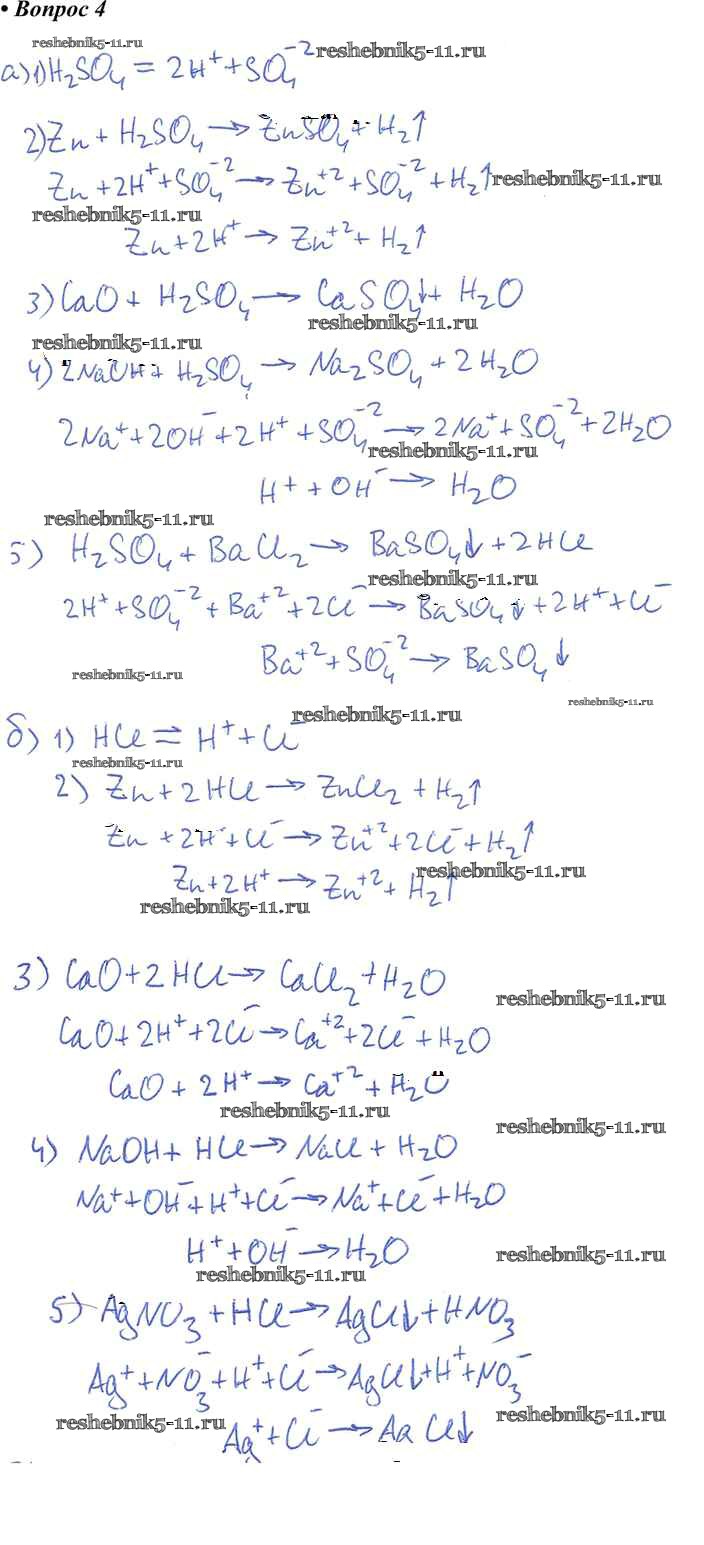 • Вопрос 4
reshebnik5-11.ru reshebnik5-11.ru
а) 1) H₂SO₄ = 2H⁺ + SO₄⁻²
2) Zn + H₂SO₄ → ZnSO₄ + H₂↑
Zn + 2H⁺ + SO₄⁻² → Zn⁺² + SO₄⁻² + H₂↑ reshebnik5-11.ru
reshebnik5-11.ru
Zn + 2H⁺ → Zn⁺² + H₂↑
3) CaO + H₂SO₄ → CaSO₄↓ + H₂O
reshebnik5-11.ru
reshebnik5-11.ru
4) 2NaOH + H₂SO₄ → Na₂SO₄ + 2H₂O
2Na⁺ + 2OH⁻ + 2H⁺ + SO₄⁻² → 2Na⁺ + SO₄⁻² + 2H₂O
reshebnik5-11.ru
H⁺ + OH⁻ → H₂O
reshebnik5-11.ru
5) H₂SO₄ + BaCl₂ → BaSO₄↓ + 2HCl
reshebnik5-11.ru
2H⁺ + SO₄⁻² + Ba⁺² + 2Cl⁻ → BaSO₄↓ + 2H⁺ + Cl⁻
Ba⁺² + SO₄⁻² → BaSO₄↓
reshebnik5-11.ru
reshebnik5-11.ru
reshebnik5-11.ru
б) 1) HCl = H⁺ + Cl⁻
reshebnik5-11.ru
2) Zn + 2HCl → ZnCl₂ + H₂↑
Zn + 2H⁺ + Cl⁻ → Zn⁺² + 2Cl⁻ + H₂↑
reshebnik5-11.ru
Zn + 2H⁺ → Zn⁺² + H₂↑
reshebnik5-11.ru
3) CaO + 2HCl → CaCl₂ + H₂O
reshebnik5-11.ru
CaO + 2H⁺ + 2Cl⁻ → Ca⁺² + 2Cl⁻ + H₂O
CaO + 2H⁺ → Ca⁺² + H₂O
reshebnik5-11.ru
reshebnik5-11.ru
4) NaOH + HCl → NaCl + H₂O
Na⁺ + OH⁻ + H⁺ + Cl⁻ → Na⁺ + Cl⁻ + H₂O
H⁺ + OH⁻ → H₂O
reshebnik5-11.ru
reshebnik5-11.ru
5) AgNO₃ + HCl → AgCl↓ + HNO₃
Ag⁺ + NO₃⁻ + H⁺ + Cl⁻ → AgCl↓ + H⁺ + NO₃⁻
reshebnik5-11.ru reshebnik5-11.ru
Ag⁺ + Cl⁻ → AgCl↓